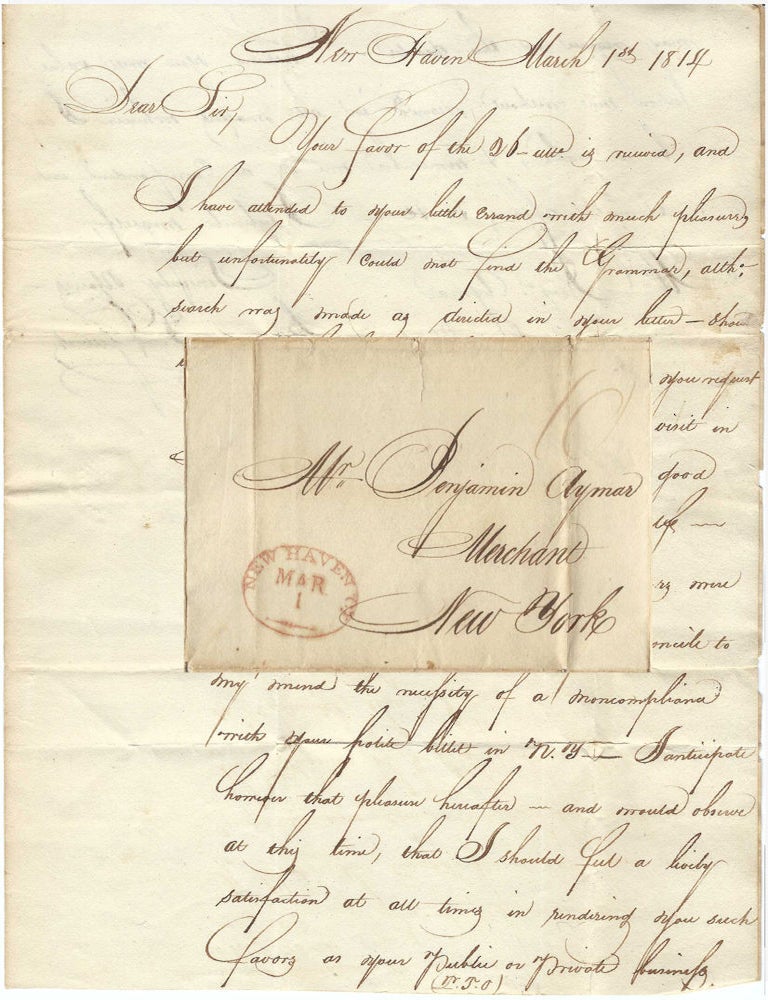 New Haven March 1st 1814
Dear Sir,
Your favor of the 26 ulto. is recieved, and
I have attended to your little errand with much pleasure,
but unfortunately could not find the Grammar, altho.
search was made as directed in your letter — shou
you request
visit in
good
were
Mr. Benjamin Aymar
Merchant
New York
NEW HAVEN CT.
MAR
1
6
my mind the necessity of a noncompliance
with your polite billet in N. Y — I anticipate
however that pleasure hereafter — and would observe
at this time, that I should feel a lively
satisfaction at all times in rendering you such
favors as your Public or Private business
(P.T.O)